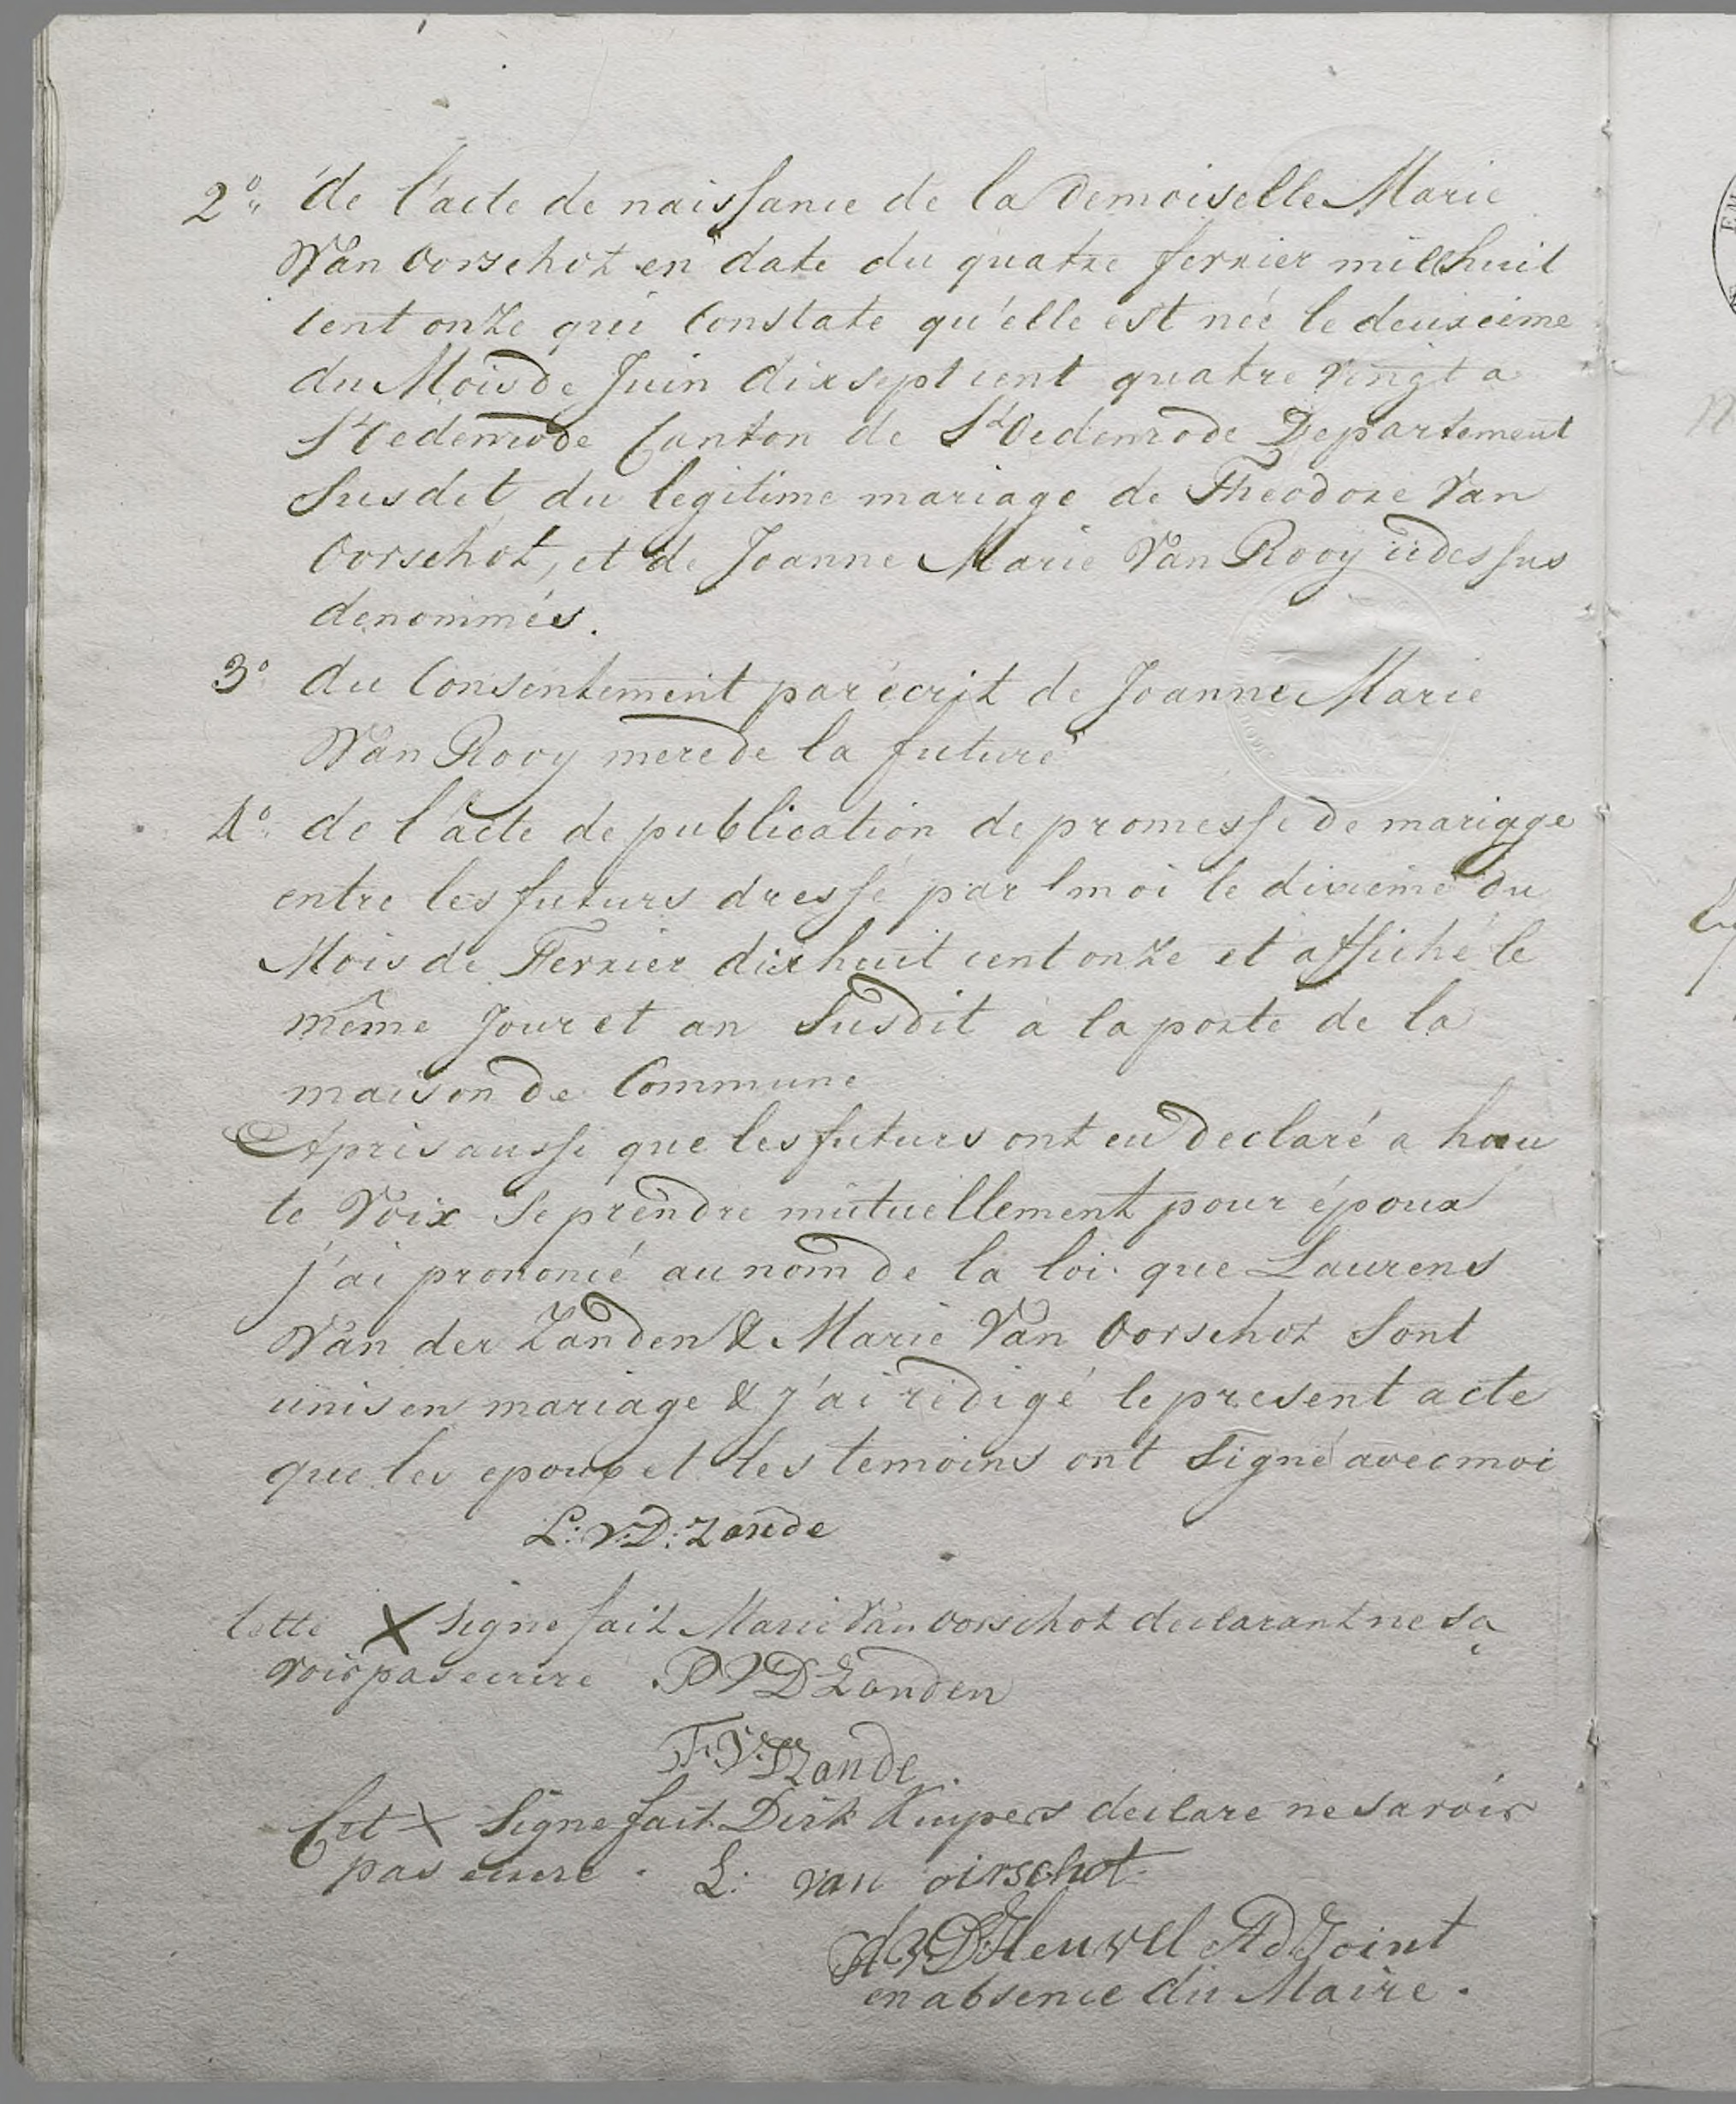 2º de l'acte de naissance de la Demoiselle Marie
Van Oorschot en date du quatre fevrier mille huit
cent onze qui Constate qu'elle est née le deuxieme
du Mois de Juin dix sept cent quatre Vingt a
St Oedenrode Canton de St Oedenrode Departement
Susdit du legitime mariage de Theodore Van
Oorschot, et de Joanne Marie Van Rooy ci dessus
denommés.
3º du Consentement par écrit de Joanne Marie
Van Rooy mere de la future
4º de l'acte de publication de promesse de mariage
entre les futurs dressé par moi le dixieme du
Mois de Fevrier dix huit cent onze et affiché le
même Jour et an Susdit à la porte de la
maison de Commune
Apris aussi que les futurs ont eu declaré a hau
te Voix Se prendre mutuellement pour époux
j'ai prononcé au nom de la loi que Laurens
Van der Zanden & Marie Van Oorschot Sont
unis en mariage & j'ai rédigé le present acte
que les epoux et les temoins ont Signé avec moi
L: V:D: Zande
Cette X Signe fait Marie Van Oorschot declarant ne sa
voir pas ecrire P V D Zanden
F: V: D Zande
Cet X Signe fait Dirk Kuipers declare ne savoir
pas ecrire. L: van oirschot
A V D Heuvel AdJoint
en absence du Maire.